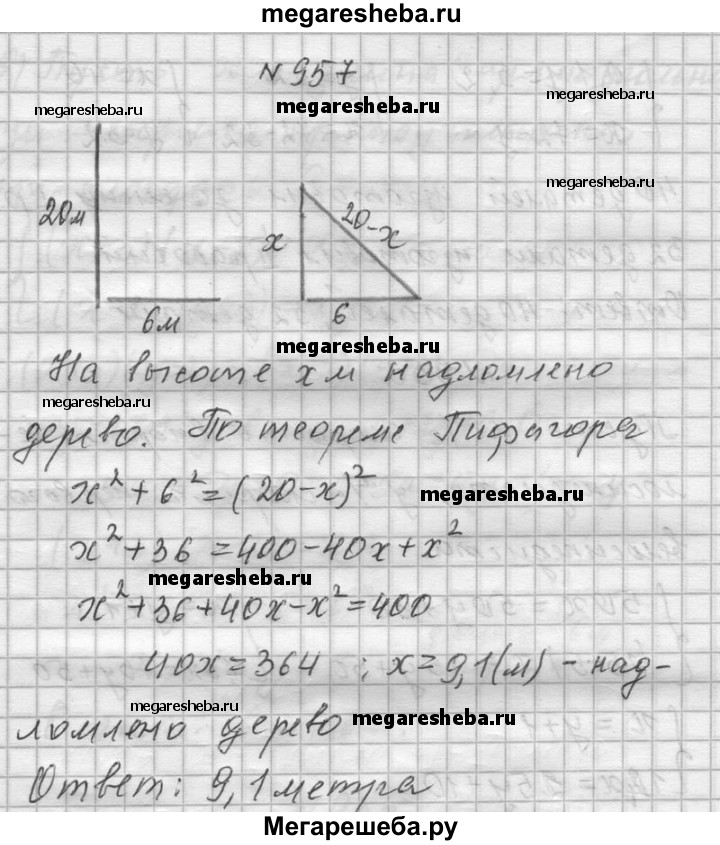 megaresheba.ru
N 957
megaresheba.ru
megaresheba.ru
megaresheba.ru
megaresheba.ru
20м
x
20-x
6м
6
megaresheba.ru
На высоте x м надломлено
megaresheba.ru
дерево. По теореме Пифагора
x² + 6² = (20-x)²
megaresheba.ru
x² + 36 = 400 - 40x + x²
megaresheba.ru
x² + 36 + 40x - x² = 400
40x = 364 ; x = 9,1(м) - над-
megaresheba.ru
ломлено дерево
megaresheba.ru
Ответ: 9,1 метра
Мегарешеба.ру